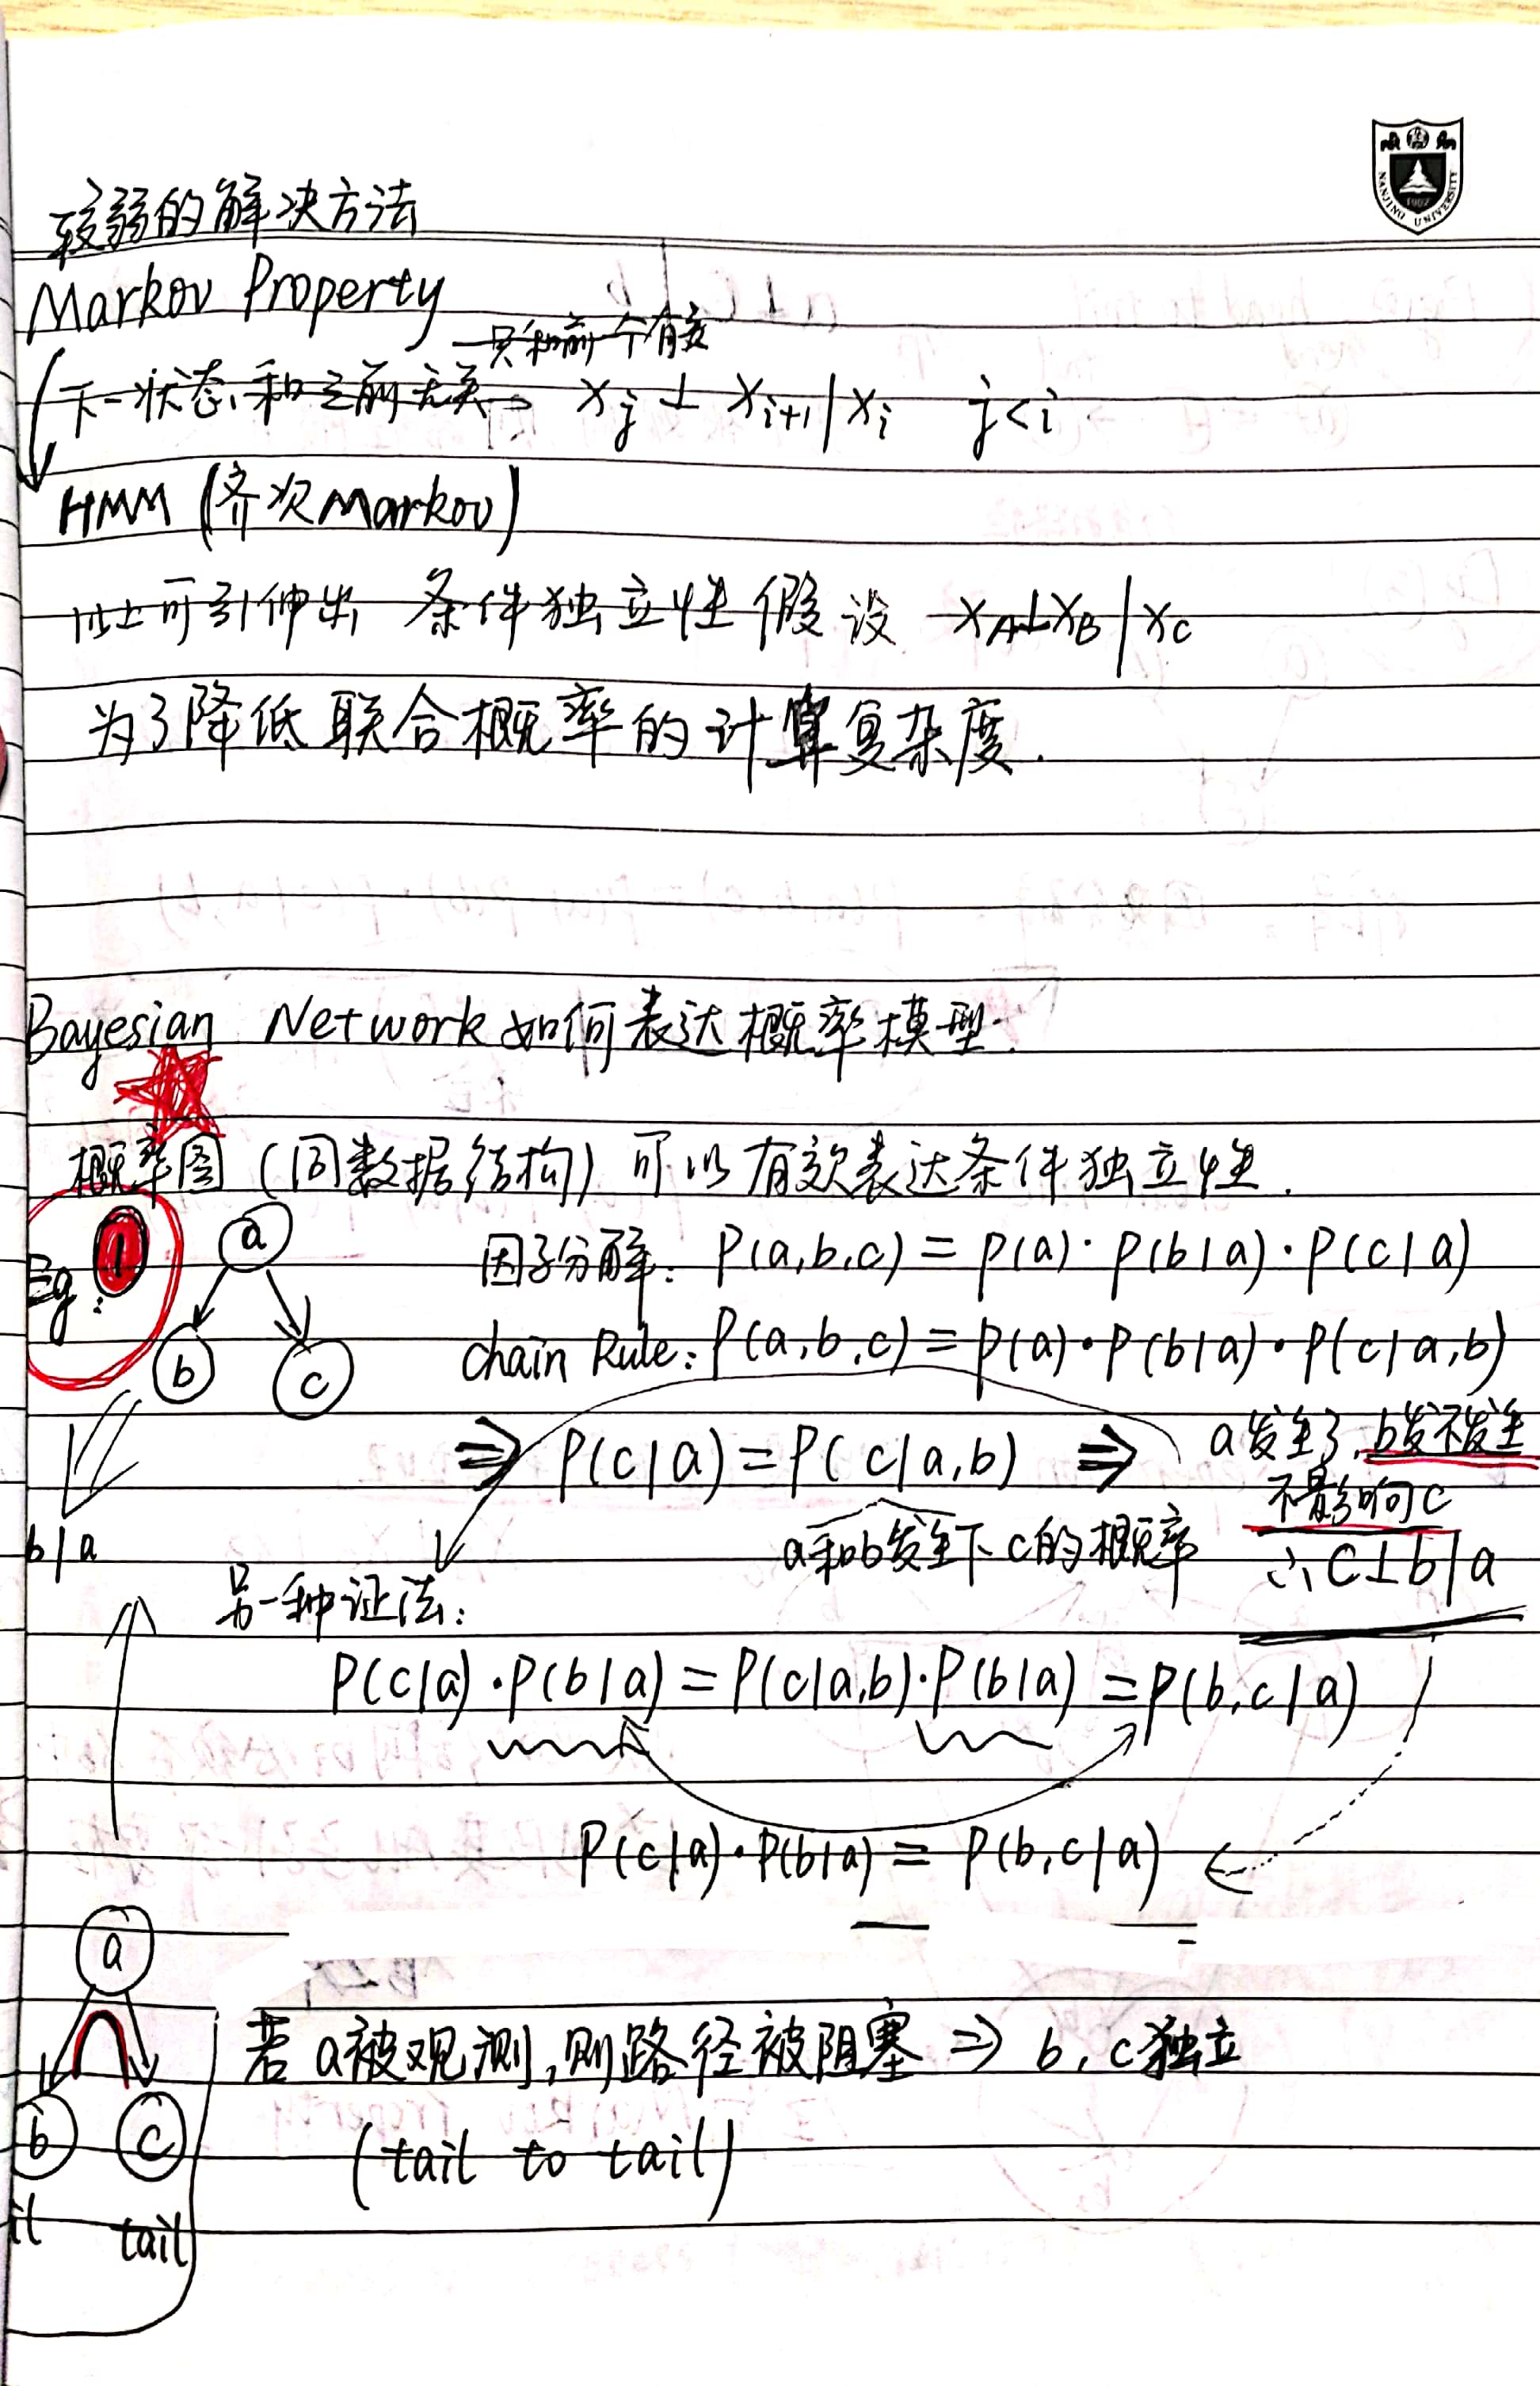 NANJING UNIVERSITY
1902
较弱的解决方法
Markov Property
只和前一个有关
下一状态和之前无关 → xj ⊥ xi+1 | xi j<i
HMM (齐次Markov)
以上可引伸出 条件独立性假设 xA⊥xB | xC
为了降低联合概率的计算复杂度.
Bayesian Network 如何表达概率模型.
概率图 (同数据结构) 可以有效表达条件独立性.
Eg: 1
a
b c
因子分解: P(a,b,c) = P(a)·P(b|a)·P(c|a)
Chain Rule: P(a,b,c) = P(a)·P(b|a)·P(c|a,b)
⇒ P(c|a) = P(c|a,b) ⇒ a发生了, b发不发生
不影响c
a和b发生下 c的概率
∴ C⊥b|a
b|a
另一种证法:
P(c|a)·P(b|a) = P(c|a,b)·P(b|a) = P(b,c|a)
P(c|a)·P(b|a) = P(b,c|a)
a
b c
若 a被观测, 则路径被阻塞 ⇒ b, c独立
(tail to tail)
il tail